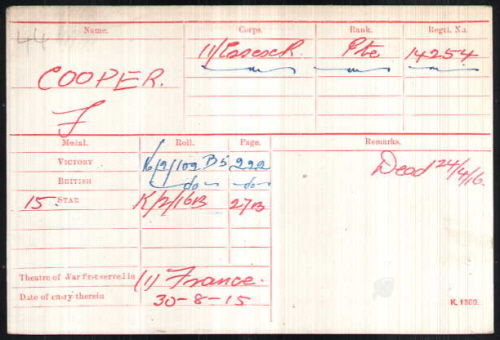 44
Name. Corps. Rank. Regtl. No.
11/Essex R. Pte 14254
COOPER.
F
Medal. Roll. Page. Remarks.
VICTORY K/2/102 B5 222 Dead 24/4/16.
BRITISH do do
15 STAR K/2/16B 27B
Theatre of War first served in (1) France.
Date of entry therein 30-8-15
K. 1380.